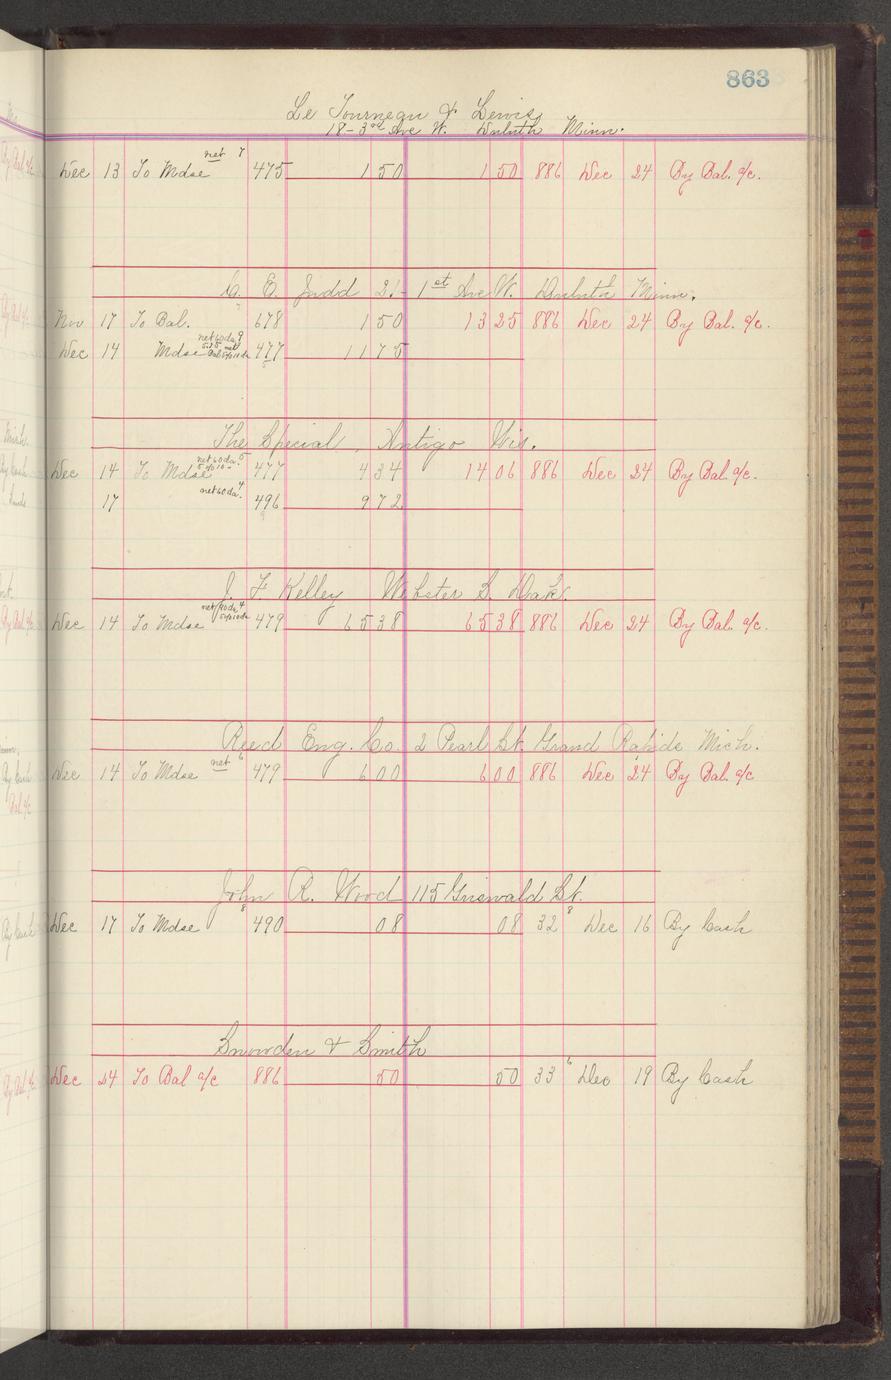 863
Le Tourneau & Lewis
18-3rd Ave W. Duluth Minn.
Dec 13 To Mdse net 7 475 1 50 1 50 886 Dec 24 By Bal. a/c.
E. Judd 21- 1st Ave W. Duluth Minn.
Nov 17 To Bal. 678 1 50 13 25 886 Dec 24 By Bal. a/c.
Dec 14 Mdse net 60 da 9 477 11 75
The Special, Antigo Wis.
Dec 14 To Mdse net 60 da 5 477 4 34 14 06 886 Dec 24 By Bal. a/c.
17 net 60 da 4 496 9 72
J. F. Kelley Webster S. Dak.
Dec 14 To Mdse 4 479 65 38 65 38 886 Dec 24 By Bal. a/c.
Reed Eng. Co. 2 Pearl St. Grand Rapids Mich.
Dec 14 To Mdse net 6 479 6 00 6 00 886 Dec 24 By Bal. a/c
John R. Wood 115 Griswald St.
Dec 17 To Mdse 8 490 08 08 32 8 Dec 16 By Cash
Snowden & Smith
Dec 24 To Bal a/c 886 50 50 33 6 Dec 19 By Cash